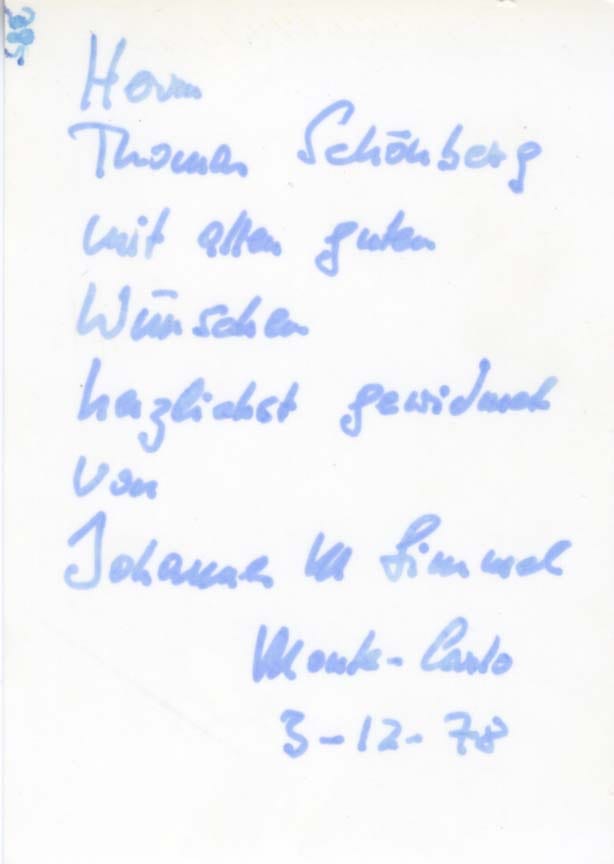 Herrn
Thomas Schönberg
mit allen guten
Wünschen
herzlichst gewidmet
von
Johannes M Simmel
Monte-Carlo
3-12-78